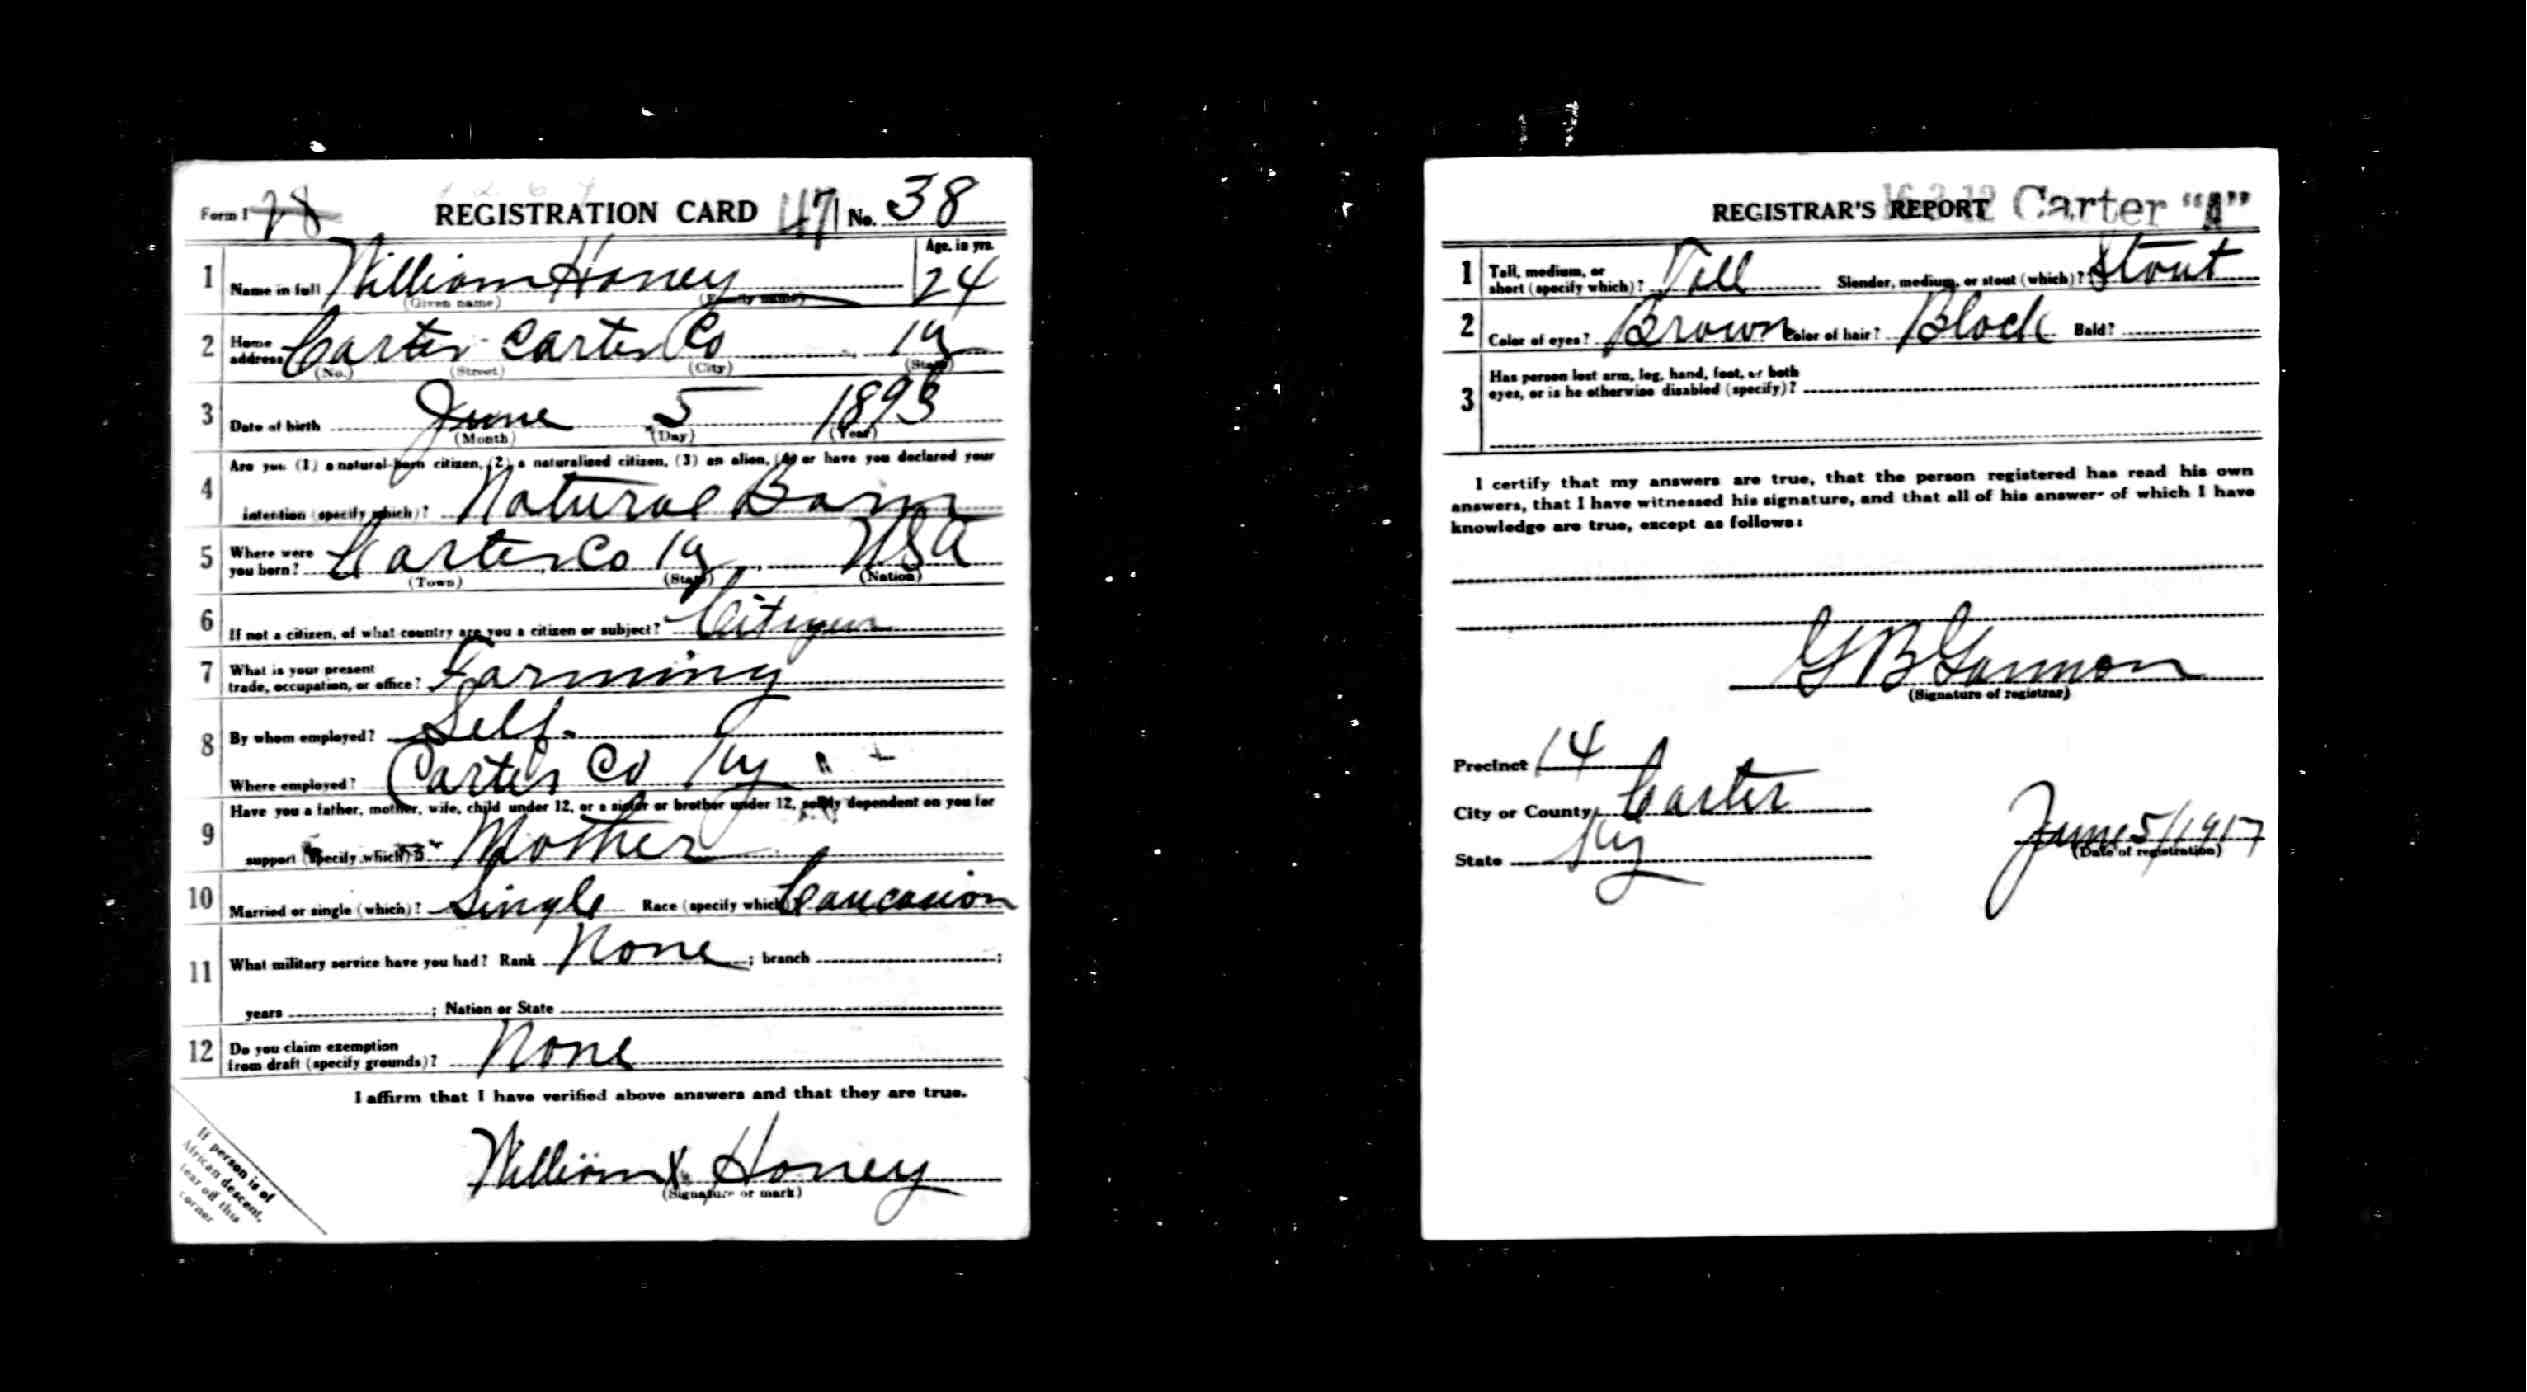 Form 1 28 REGISTRATION CARD 47 No. 38
Age, in yrs.
1 Name in full William Honey 24
(Given name) (Family name)
2 Home address Carter Carter Co Ky
(No.) (Street) (City) (State)
3 Date of birth June 5 1893
(Month) (Day) (Year)
Are you (1) a natural-born citizen, (2) a naturalized citizen, (3) an alien, (4) or have you declared your
4 intention (specify which)? Natural Born
5 Where were you born? Carter Co Ky USA
(Town) (State) (Nation)
6 If not a citizen, of what country are you a citizen or subject? Citizen
7 What is your present
trade, occupation, or office? Farming
8 By whom employed? Self
Where employed? Carter Co Ky
Have you a father, mother, wife, child under 12, or a sister or brother under 12, solely dependent on you for
9 support (specify which)? Mother
10 Married or single (which)? Single Race (specify which) Caucasion
11 What military service have you had? Rank None ; branch ;
years ; Nation or State
12 Do you claim exemption
from draft (specify grounds)? None
I affirm that I have verified above answers and that they are true.
William X Honey
(Signature or mark)
If person is of
African descent,
tear off this
corner
REGISTRAR'S REPORT Carter "A"
1 Tall, medium, or
short (specify which)? Tall Slender, medium, or stout (which)? Stout
2 Color of eyes? Brown Color of hair? Black Bald?
3 Has person lost arm, leg, hand, foot, or both
eyes, or is he otherwise disabled (specify)?
I certify that my answers are true, that the person registered has read his own
answers, that I have witnessed his signature, and that all of his answers of which I have
knowledge are true, except as follows:
G B Gammon
(Signature of registrar)
Precinct 14
City or County Carter
State Ky
June 5/1917
(Date of registration)